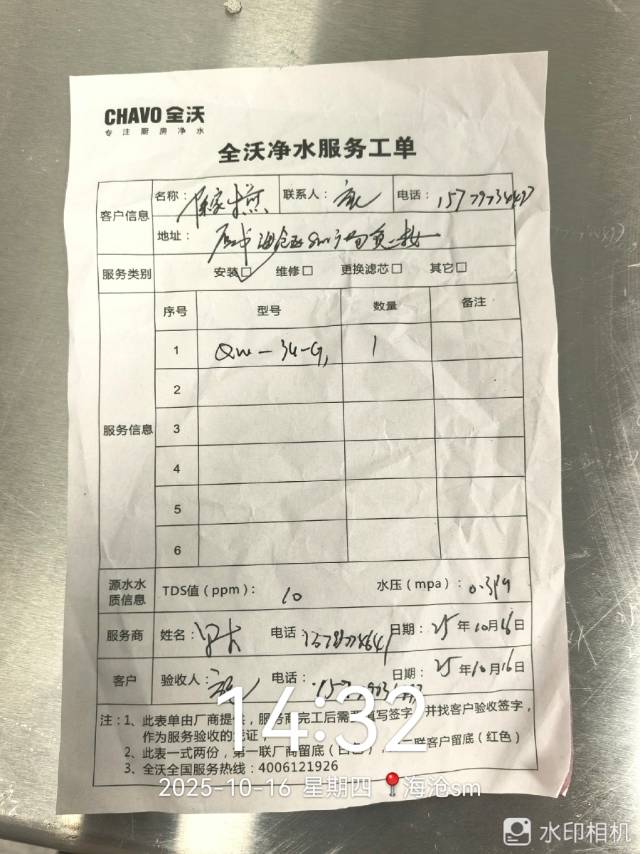 CHAVO 全沃
专注厨房净水
全沃净水服务工单
客户信息
名称：
联系人：
电话：
地址：
服务类别
安装☑ 维修□ 更换滤芯□ 其它□
服务信息
序号 型号 数量 备注
1 QW-34-G, 1
2
3
4
5
6
源水水质信息
TDS值（ppm）： 10 水压（mpa）：
服务商 姓名： 电话 日期：25年10月16日
客户 验收人： 电话： 日期：25年10月16日
注：1、此表单由厂商提供，服务商完工后需要填写签字，并找客户验收签字，
作为服务验收的凭证；
2、此表一式两份，第一联厂商留底（白色），联客户留底（红色）
3、全沃全国服务热线：4006121926
14:32
2025-10-16 星期四 海沧sm
水印相机